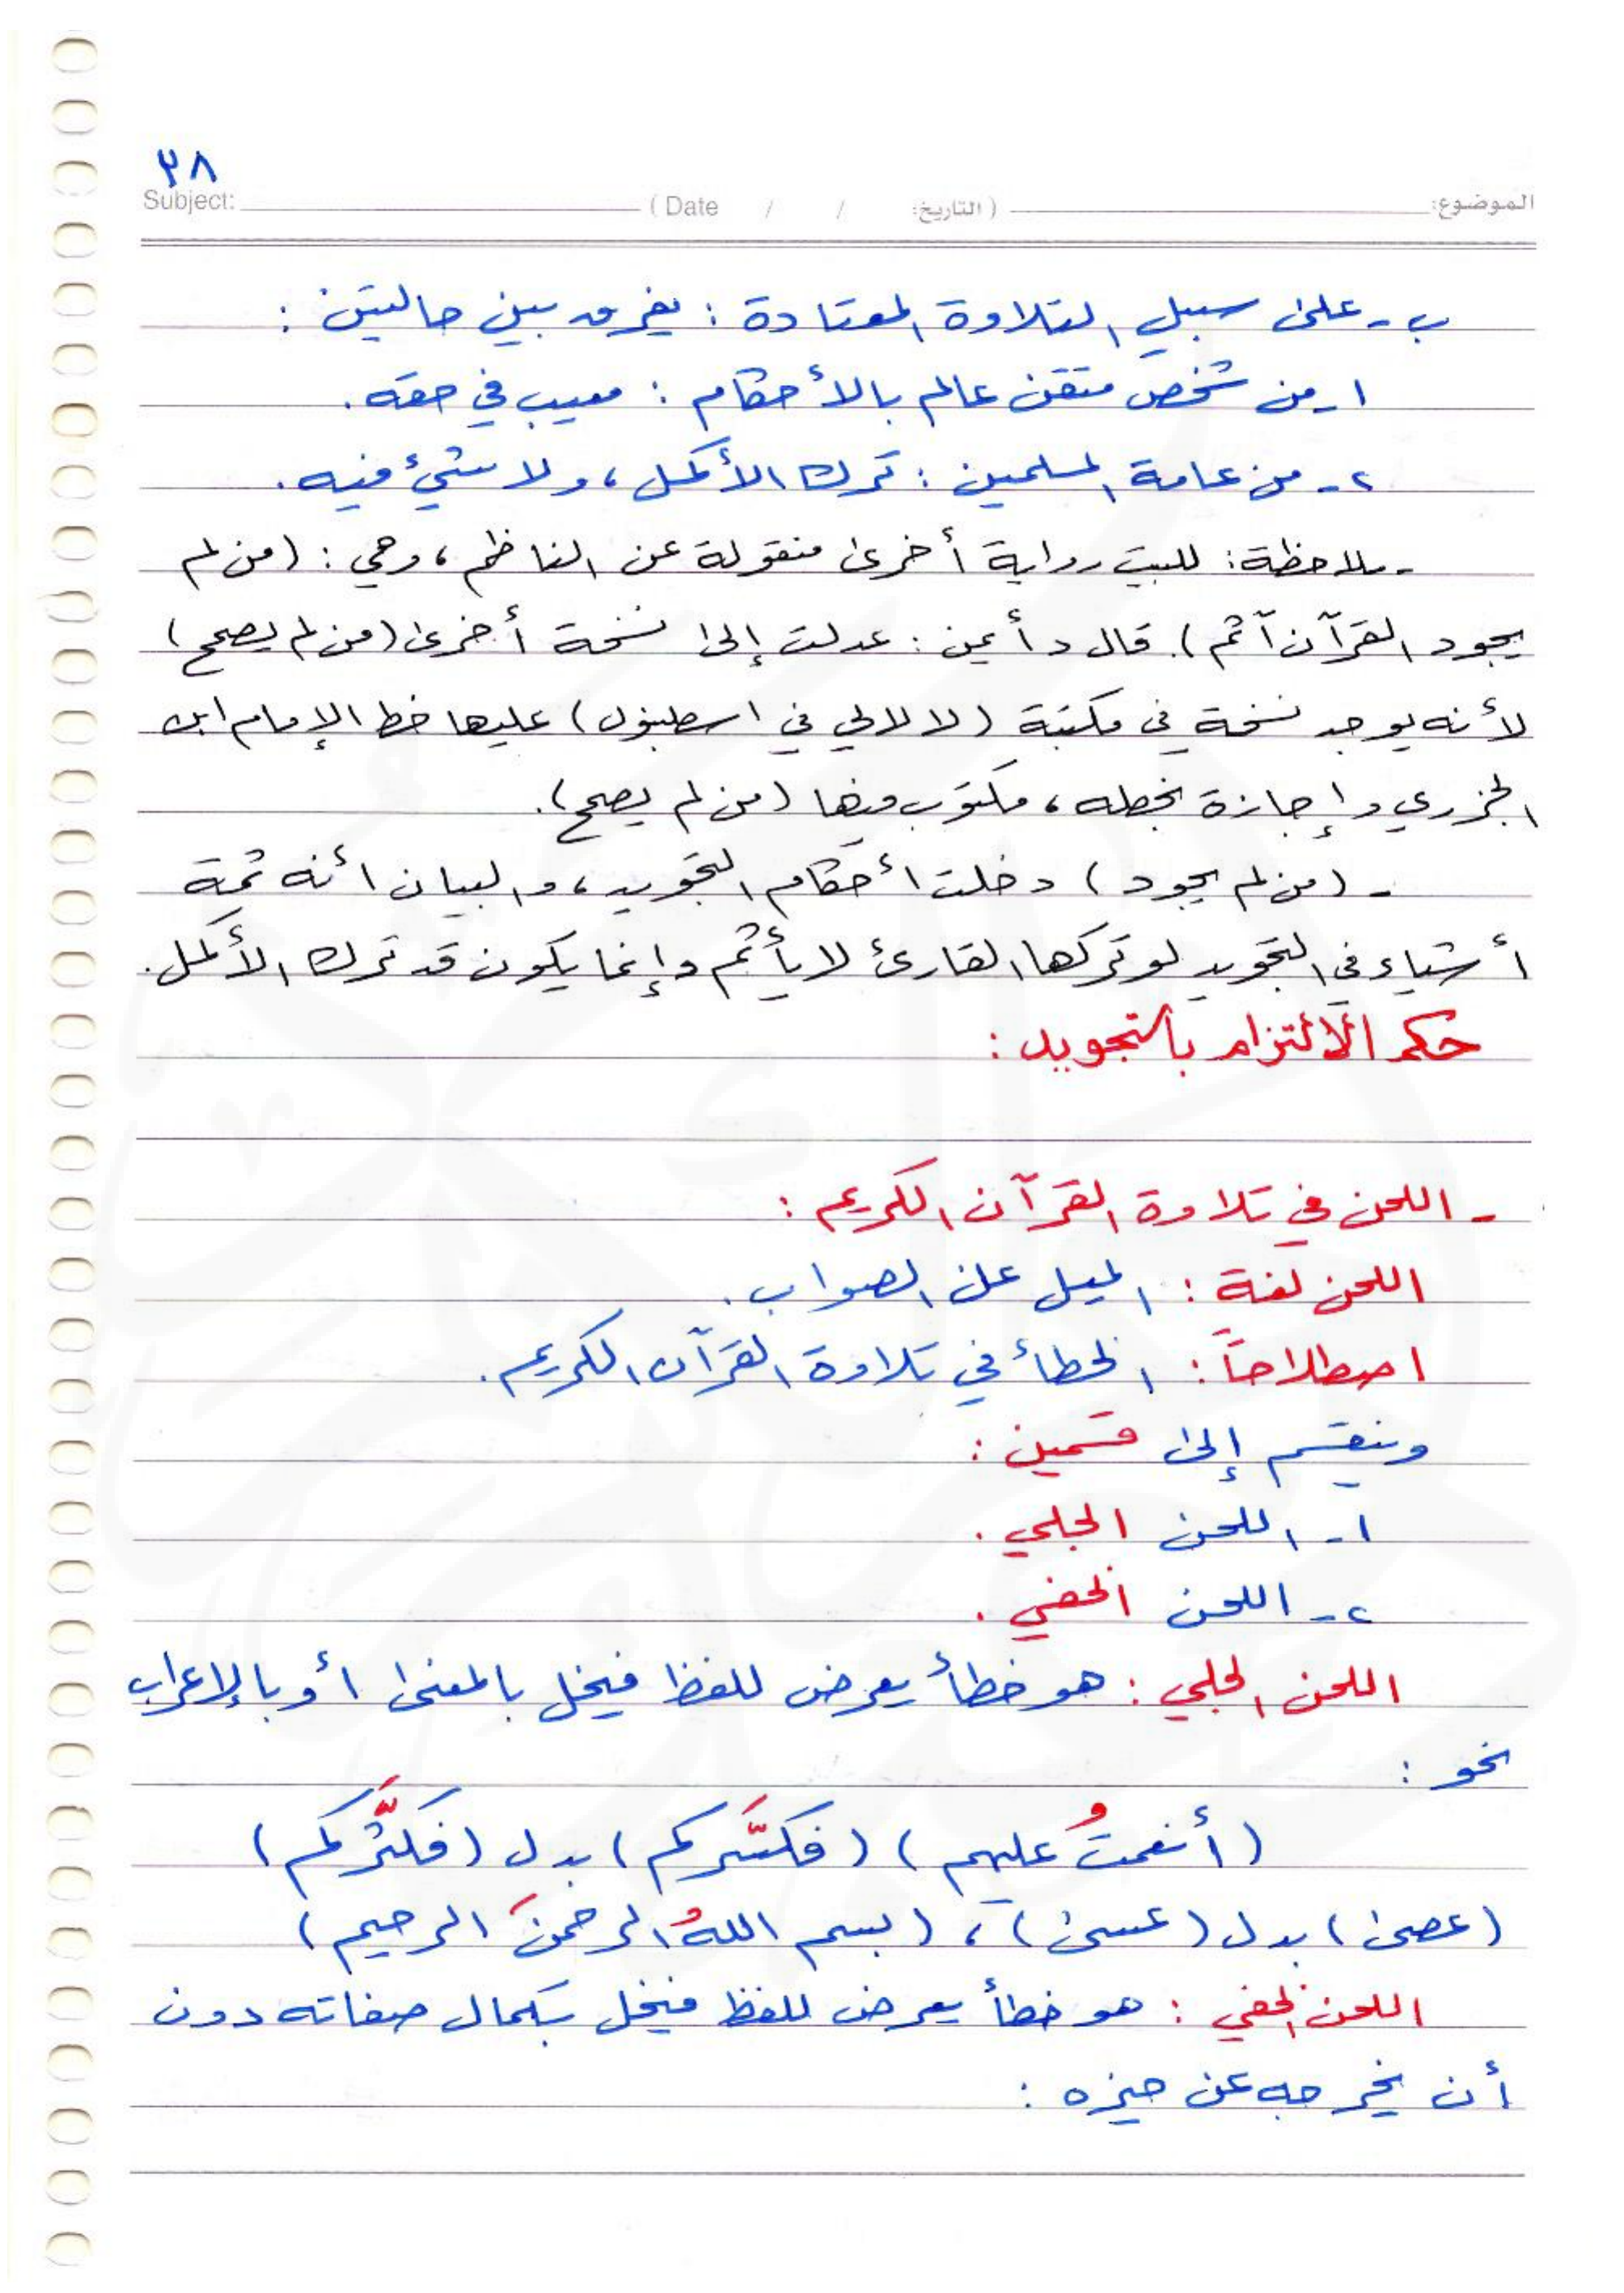 ٣٨
Subject: ( Date / / التاريخ ) الموضوع:
ب - على سبيل التلاوة المعتادة : يفرق بين حالتين :
١ - من شخص متقن عالم بالأحكام : معيب في حقه .
٢ - من عامة المسلمين : ترك الأكمل ، ولا شيء فيه .
- ملاحظة : للبيت رواية أخرى منقولة عن الناظم ، وهي : ( من لم
يجود القرآن آثم ) . قال د أيمن : عدلت إلى نسخة أخرى ( من لم يصحح )
لأنه يوجد نسخة في مكتبة ( لا لالي في اسطنبول ) عليها خط الإمام ابن
الجزري وإجازة بخطه ، مكتوب فيها ( من لم يصحح ) .
- ( من لم يجود ) دخلت أحكام التجويد ، والبيان أنه ثمة
أشياء في التجويد لو تركها القارئ لا يأثم وإنما يكون قد ترك الأكمل .
حكم الالتزام بالتجويد :
- اللحن في تلاوة القرآن الكريم :
اللحن لغة : الميل عن الصواب .
اصطلاحاً : الخطأ في تلاوة القرآن الكريم .
وينقسم إلى قسمين :
١ - اللحن الجلي .
٢ - اللحن الخفي .
اللحن الجلي : هو خطأ يعرض للفظ فيخل بالمعنى أو بالإعراب
نحو :
( أنعمتُ عليهم ) ( فكسَّركم ) بدل ( فكثَّركم )
( عصى ) بدل ( عسى ) ، ( بسم اللهُ الرحمنَ الرحيم )
اللحن الخفي : هو خطأ يعرض للفظ فيخل بكمال صفاته دون
أن يخرجه عن حيزه :